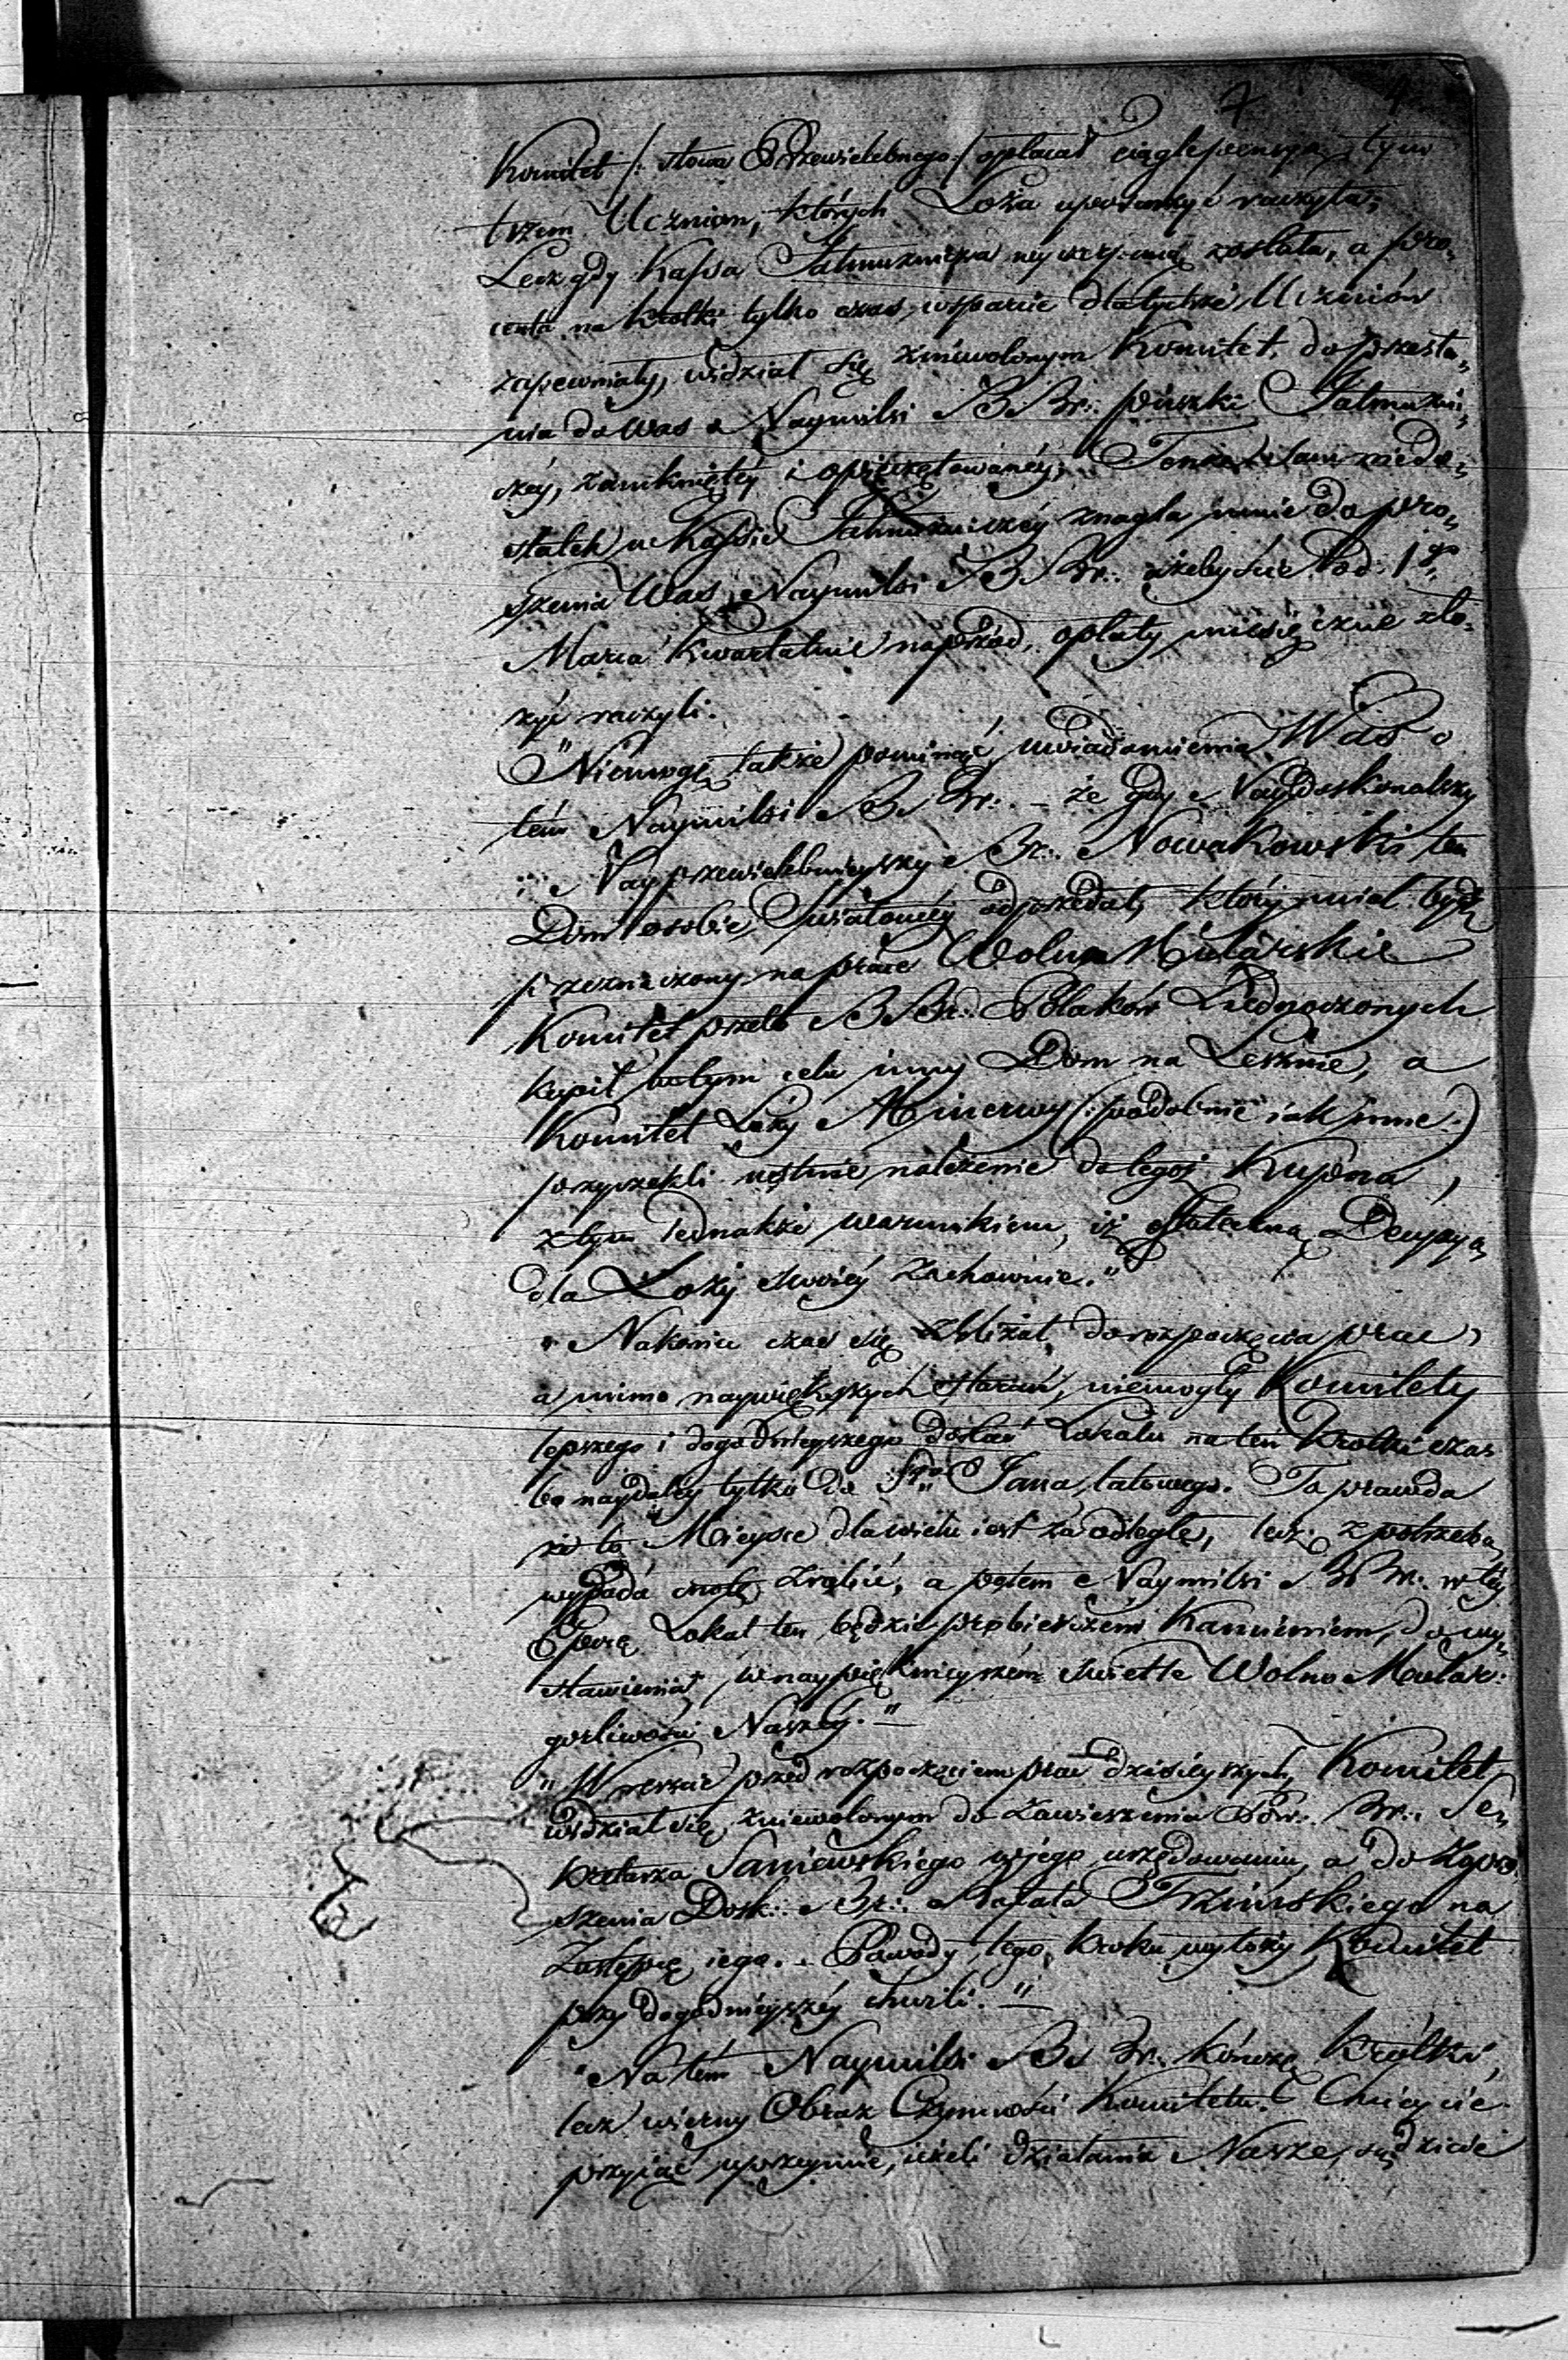 7 4
Komitet /: słowa Przewielebnego :/ opłacał ciągle pensyą tym
trzém Uczniom, których Loża uposażyć raczyła;
Lecz gdy Kassa Jałmużnicza wyczerpaną została, a pro„
centa na krótki tylko czas wsparcie dla tychże Uczniów
zapewniały, widział się zniewolonym Komitet, do przesła„
nia do Was Naymilsi B Br:. puszki Jałmużni„
czéy, zamkniętéy i opieczętowanéy; Tenże sam niedo„
statek w Kassie Jałmużniczéy znagla mnie do pro„
szenia Was, Naymilsi B Br:. ażebyście od 1go
Marca kwartalnie naprzód, opłaty miesięczne zło„
żyć raczyli.
„Niemogę także pominąć uwiadomienia Was o
tém Naymilsi B Br:. – że gdy Naydoskonalszy
i Nayprzewielebnieyszy Br:. Nowakowski ten
Dom osobie Światowéy odprzedał, który miał bydź
przeznaczony na prace Wolno Mularskie
Komitet przeto B Br:. Polaków Ziednoczonych
kupił w tym celu inny Dom na Lesznie, a
Komitet Loży Minerwy (: podobnie iak inne :)
przyrzekli ustnie należenie do tegoż Kupna,
z tym iednakże warunkiem, iż stateczną Decyzyą
dla Loży swoiéy zachowuie."
„Nakoniec czas się zbliżał do rozpoczęcia prac,
a mimo naywiększych starań, niemogły Komitety
lepszego i dogodnieyszego dostać Lokalu na ten krótki czas
bo naydaléy tylko do Sgo Jana latowego. To prawda
że to Mieysce dla wielu iest za odległe, lecz z potrzeby
wypada cnotę zrobić, a potém Naymilsi B Br:. w téy
Porą Lokal ten będzie probierczém Kamieniem, do wy„
stawienia, w naypięknieyszém świetle Wolno Mular:
gorliwości Naszéy." –
„Wreszcie przed rozpoczęciem prac dzisieyszych, Komitet
widział się zniewolonym do zawieszenia Pow:. Br:. Se„
kretarza Saniewskiego w jego urzędowaniu, a do Zapro„
szenia Dosk:. Br:. Rafała Trzcińskiego na
Zastępcę iego. – Powody tego kroku wyłoży Komitet
przy dogodnieyszéy chwili." –
„Na tém Naymilsi B Br:. kończę krótki,
lecz wierny Obraz Czynności Komitetu. Chcieycie
przyiąć uprzeymie, ieżeli działania Nasze, sądzicie